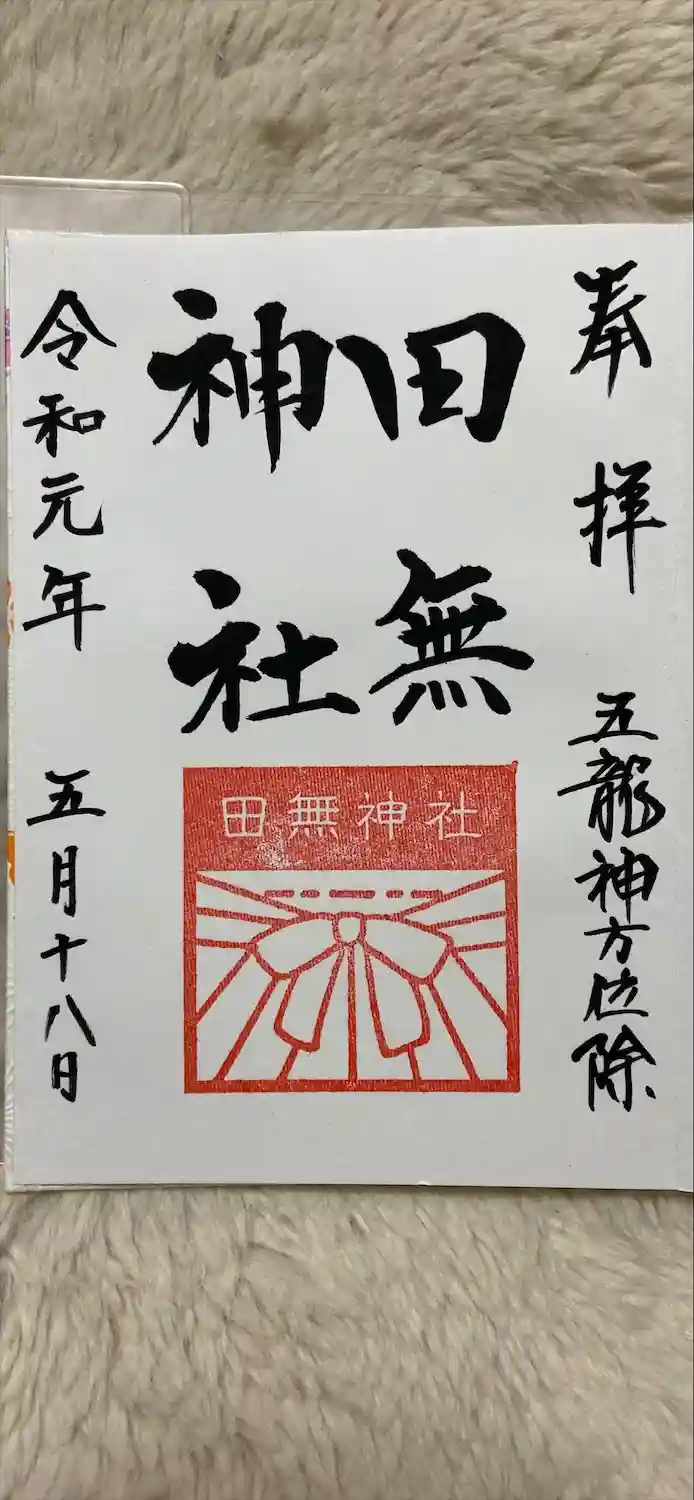 奉拝 五龍神方位除
田無
神社
令和元年 五月十八日
田無神社